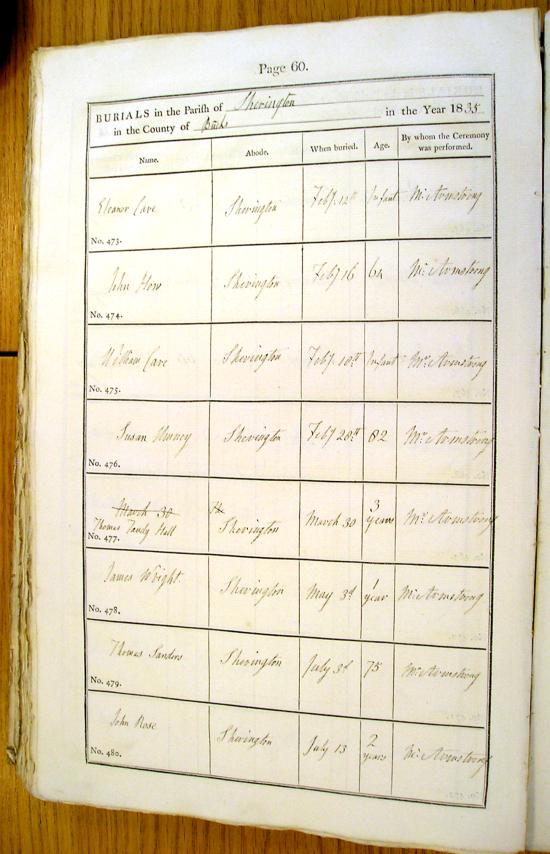 Page 60.
BURIALS in the Parish of Sherington
in the County of Bucks in the Year 1835
Name. Abode. When buried. Age. By whom the Ceremony was performed.
Eleanor Cave Sherington Feby. 12th Infant Mr. Armstrong
No. 473.
John How Sherington Feby 16 64 Mr. Armstrong
No. 474.
William Cave Sherington Feby. 18th Infant Mr. Armstrong
No. 475.
Susan Sherington Feby 28th 82 Mr. Armstrong
No. 476.
March 30
Thomas Tandy Hall Sherington March 30 3 years Mr. Armstrong
No. 477.
James Wright Sherington May 3d 1 year Mr. Armstrong
No. 478.
Thomas Sanders Sherington July 3d 75 Mr. Armstrong
No. 479.
John Rose Sherington July 13 2 years Mr. Armstrong
No. 480.